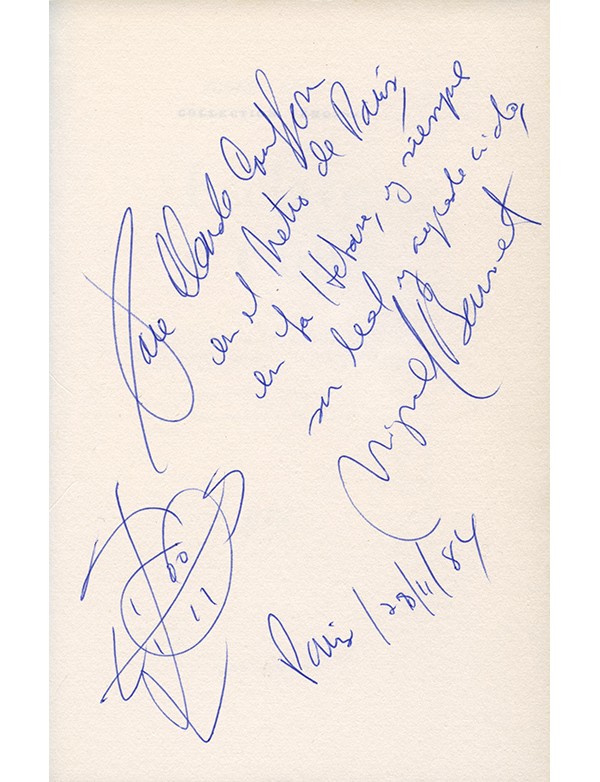 Para Claude Couffon
en el Metro de París,
en La Habana, y siempre
su leal y agradecido,
Miguel Barnet
París /28/11/84